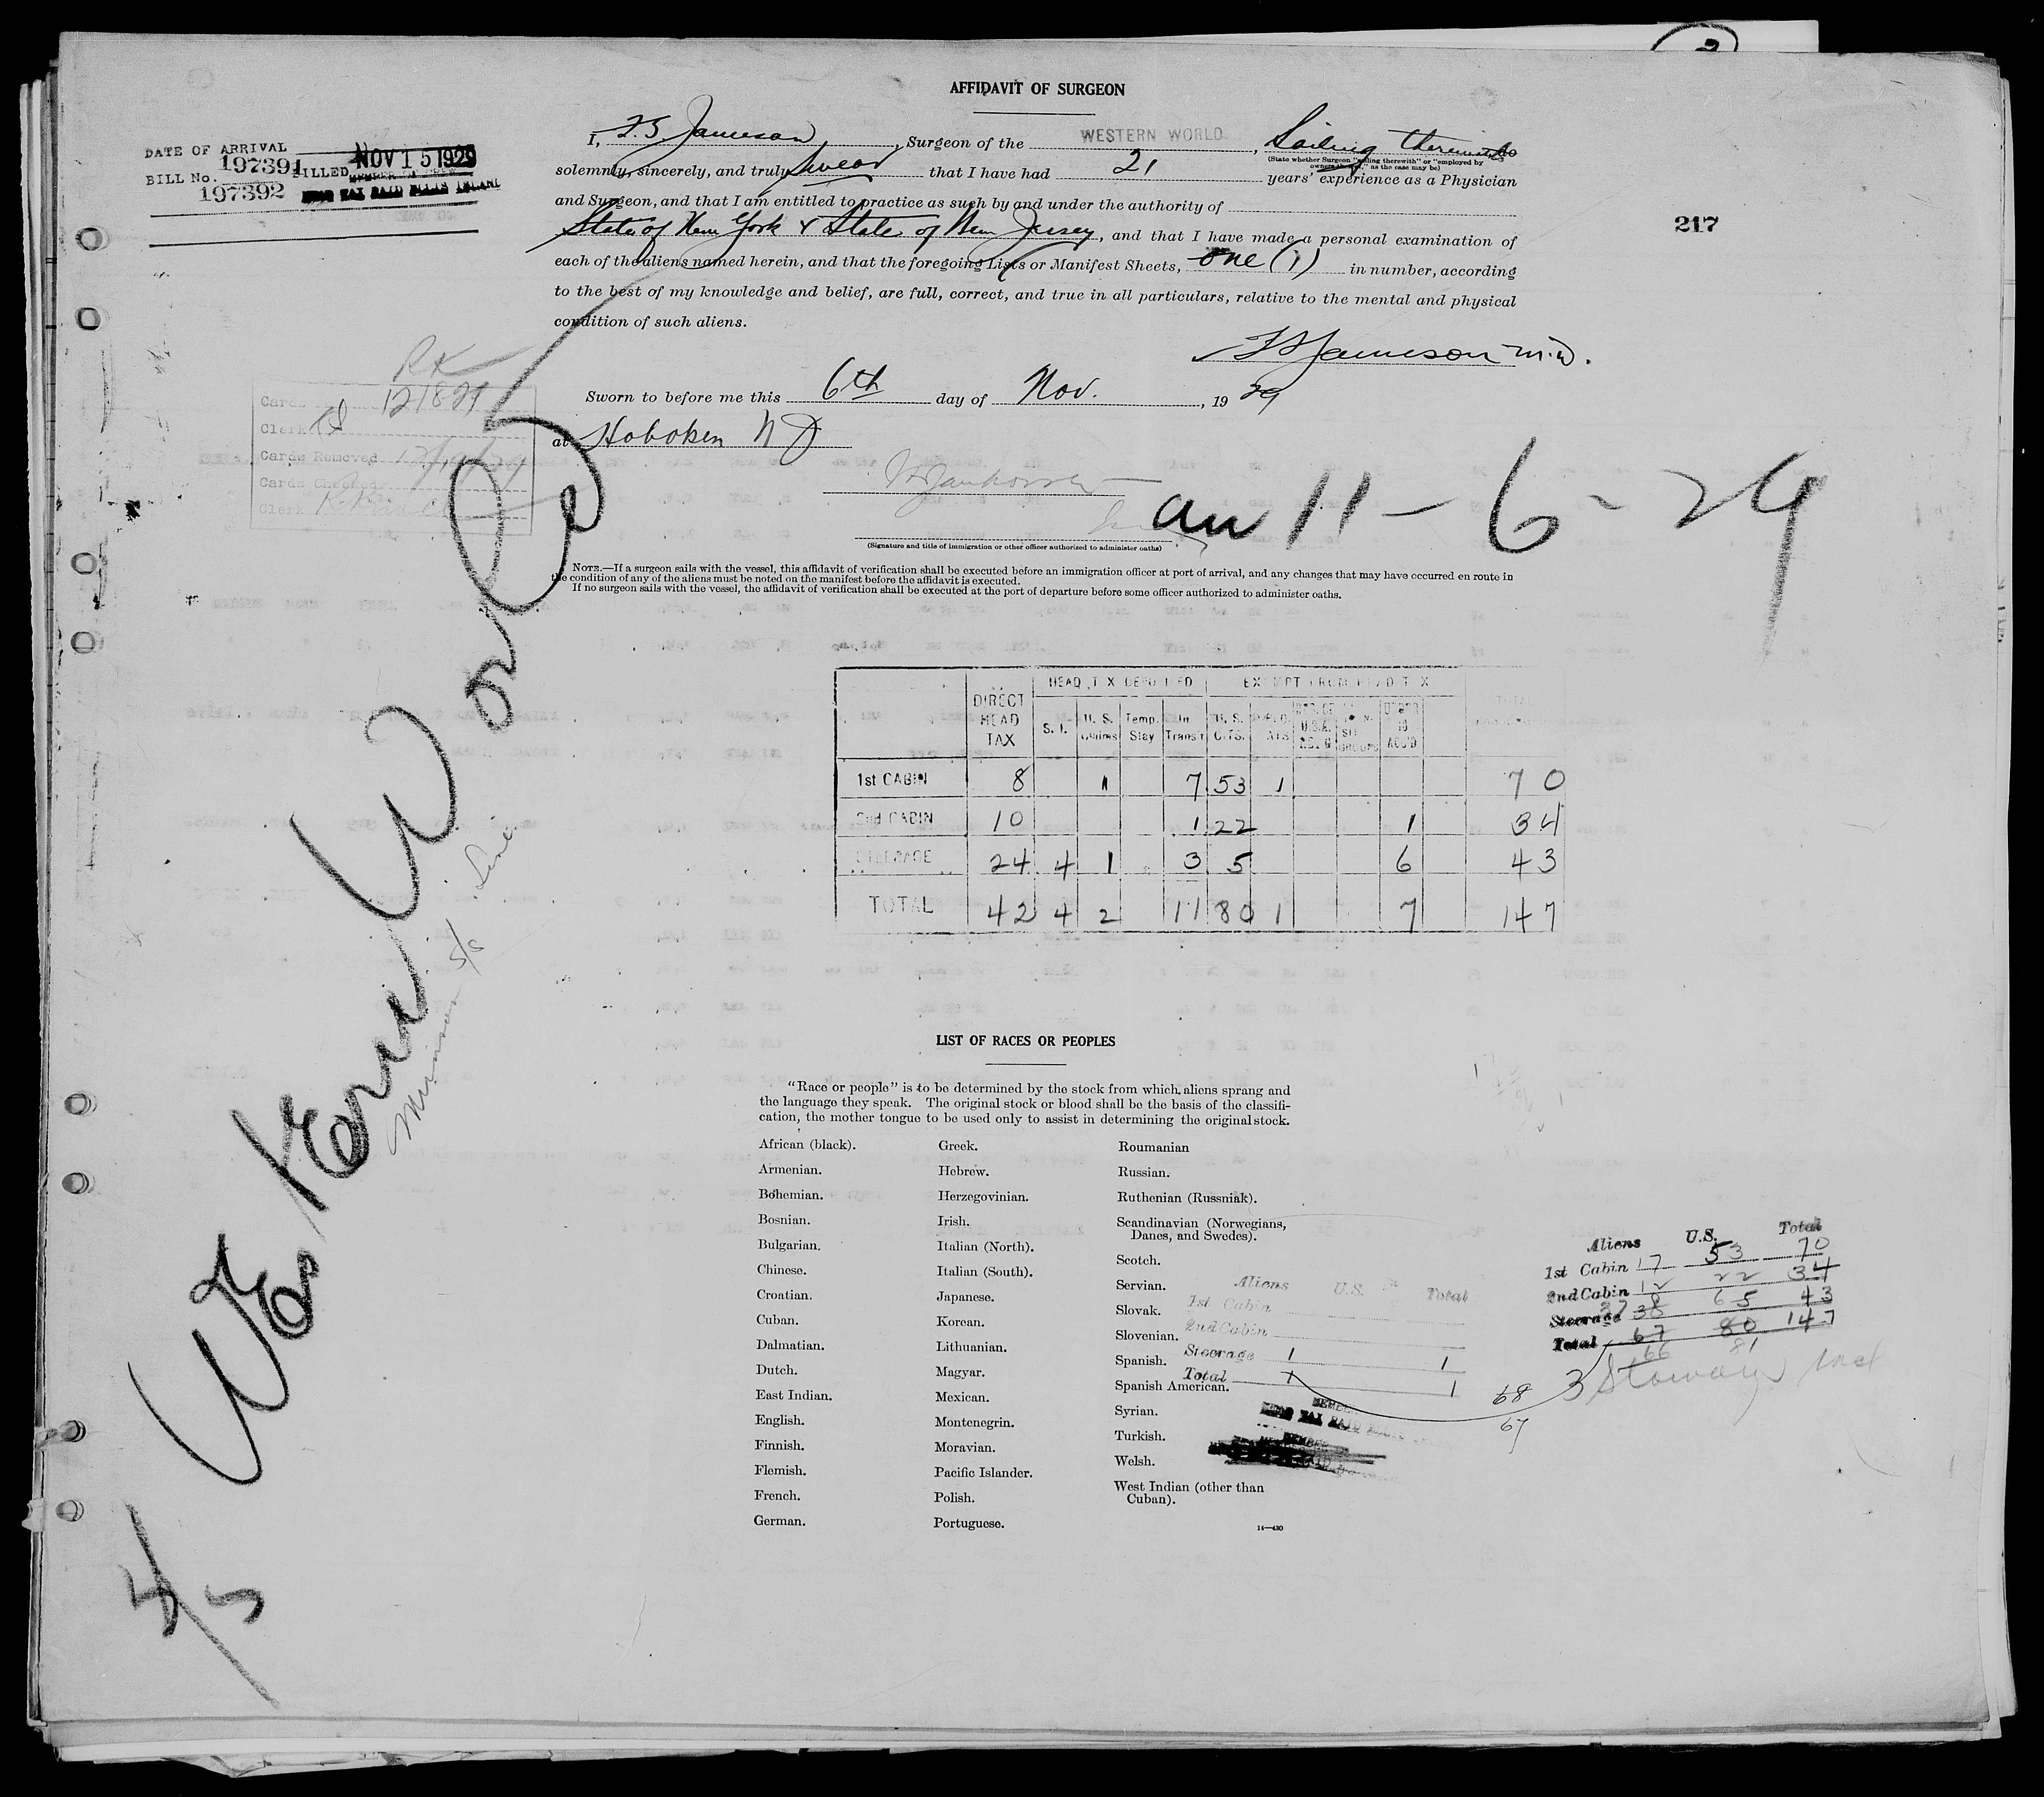 AFFIDAVIT OF SURGEON
DATE OF ARRIVAL NOV 15 1929
197391 FILLED
BILL No.
197392 HEAD TAX PAID ELLIS ISLAND
217
I, F.S. Jameson, Surgeon of the WESTERN WORLD, Sailing therewith
(State whether Surgeon "sailing therewith" or "employed by
owners thereof," as the case may be)
solemnly, sincerely, and truly swear that I have had 21 years' experience as a Physician
and Surgeon, and that I am entitled to practice as such by and under the authority of
State of New York & State of New Jersey, and that I have made a personal examination of
each of the aliens named herein, and that the foregoing Lists or Manifest Sheets, one (1) in number, according
to the best of my knowledge and belief, are full, correct, and true in all particulars, relative to the mental and physical
condition of such aliens.
FS Jameson M.D.
Sworn to before me this 6th day of Nov., 19 29
at Hoboken N J
arr 11-6-29
(Signature and title of immigration or other officer authorized to administer oaths)
RK
12/18/29
Clerk
Cards Removed
Cards Checked
Clerk
NOTE.—If a surgeon sails with the vessel, this affidavit of verification shall be executed before an immigration officer at port of arrival, and any changes that may have occurred en route in
the condition of any of the aliens must be noted on the manifest before the affidavit is executed.
If no surgeon sails with the vessel, the affidavit of verification shall be executed at the port of departure before some officer authorized to administer oaths.
S/S Western World
Munson S/S Line
HEAD TAX DEPOSITED EXEMPT FROM HEAD TAX
DIRECT HEAD TAX S. I. U. S. Claims Temp. Stay In Transit U. S. CITS. UNDER 16 ACC'D TOTAL
1st CABIN 8 1 7 53 1 70
2nd CABIN 10 1 22 1 34
STEERAGE 24 4 1 3 5 6 43
TOTAL 42 4 2 11 80 1 7 147
LIST OF RACES OR PEOPLES
"Race or people" is to be determined by the stock from which aliens sprang and
the language they speak. The original stock or blood shall be the basis of the classifi-
cation, the mother tongue to be used only to assist in determining the original stock.
African (black).
Armenian.
Bohemian.
Bosnian.
Bulgarian.
Chinese.
Croatian.
Cuban.
Dalmatian.
Dutch.
East Indian.
English.
Finnish.
Flemish.
French.
German.
Greek.
Hebrew.
Herzegovinian.
Irish.
Italian (North).
Italian (South).
Japanese.
Korean.
Lithuanian.
Magyar.
Mexican.
Montenegrin.
Moravian.
Pacific Islander.
Polish.
Portuguese.
Roumanian
Russian.
Ruthenian (Russniak).
Scandinavian (Norwegians,
Danes, and Swedes).
Scotch.
Servian.
Slovak.
Slovenian.
Spanish.
Spanish American.
Syrian.
Turkish.
Welsh.
West Indian (other than
Cuban).
14—430
Aliens U.S. Total
1st Cabin
2nd Cabin
Steerage 1 1
Total 1 1
HEAD TAX PAID
Aliens U.S. Total
1st Cabin 17 53 70
2nd Cabin 12 22 34
Steerage 37 38 6 5 43
Total 67 80 147
66 81
3 Stowaways incl
68
67